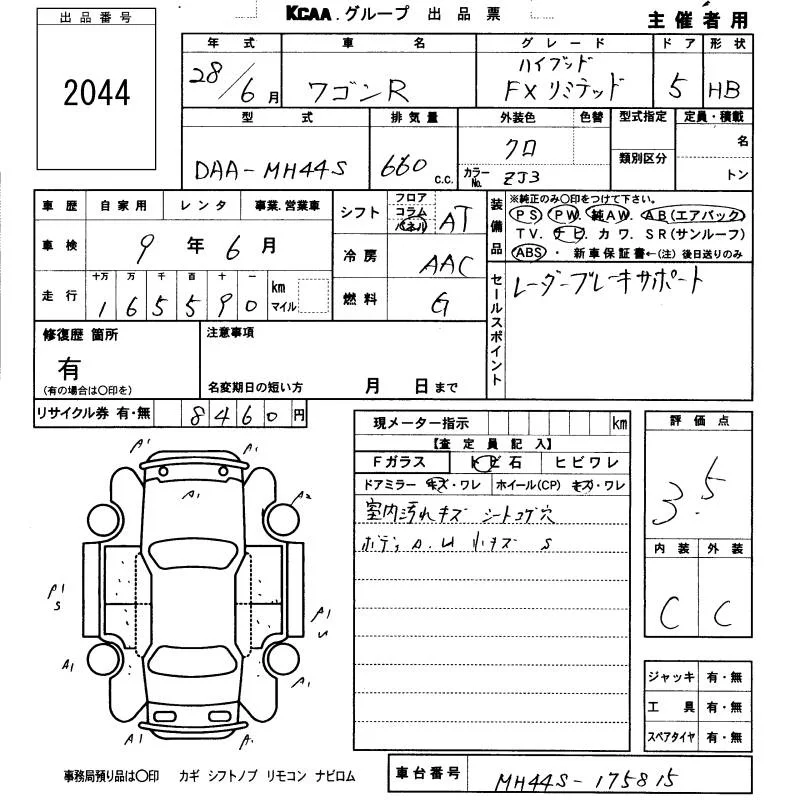 KCAA. グループ 出品票
主催者用
出品番号
2044
年式 車名 グレード ドア 形状
28/6月 ワゴンR ハイブリッド FXリミテッド 5 HB
型式 排気量 外装色 色替 型式指定 定員・積載
DAA-MH44S 660 c.c. クロ 名
カラーNo. ZJ3 類別区分 トン
車歴 自家用 レンタ 事業.営業車
シフト フロア コラム パネル AT
車検 9年6月
冷房 AAC
走行 十万 万 千 百 十 一
165590 km マイル
燃料 G
装備品 ※純正のみ○印をつけて下さい。
PS PW 純AW. AB(エアバック)
TV. ナビ. カワ. SR(サンルーフ)
ABS ・ 新車保証書←(注) 後日送りのみ
セールスポイント
レーダーブレーキサポート
修復歴 箇所
有
(有の場合は○印を)
注意事項
名変期日の短い方 月 日まで
リサイクル券 有・無 8460円
現メーター指示 km
【査定員記入】
Fガラス トビ石 ヒビワレ
ドアミラー キズ・ワレ ホイール(CP) キズ・ワレ
室内汚れキズ シートコゲ穴
ボディ A.U 小キズ S
評価点
3.5
内装 外装
C C
A1 A1
A1 A2
A1 S
A1 U
A1 A1
A1 A1
ジャッキ 有・無
工具 有・無
スペアタイヤ 有・無
事務局預り品は○印 カギ シフトノブ リモコン ナビロム
車台番号 MH44S-175815